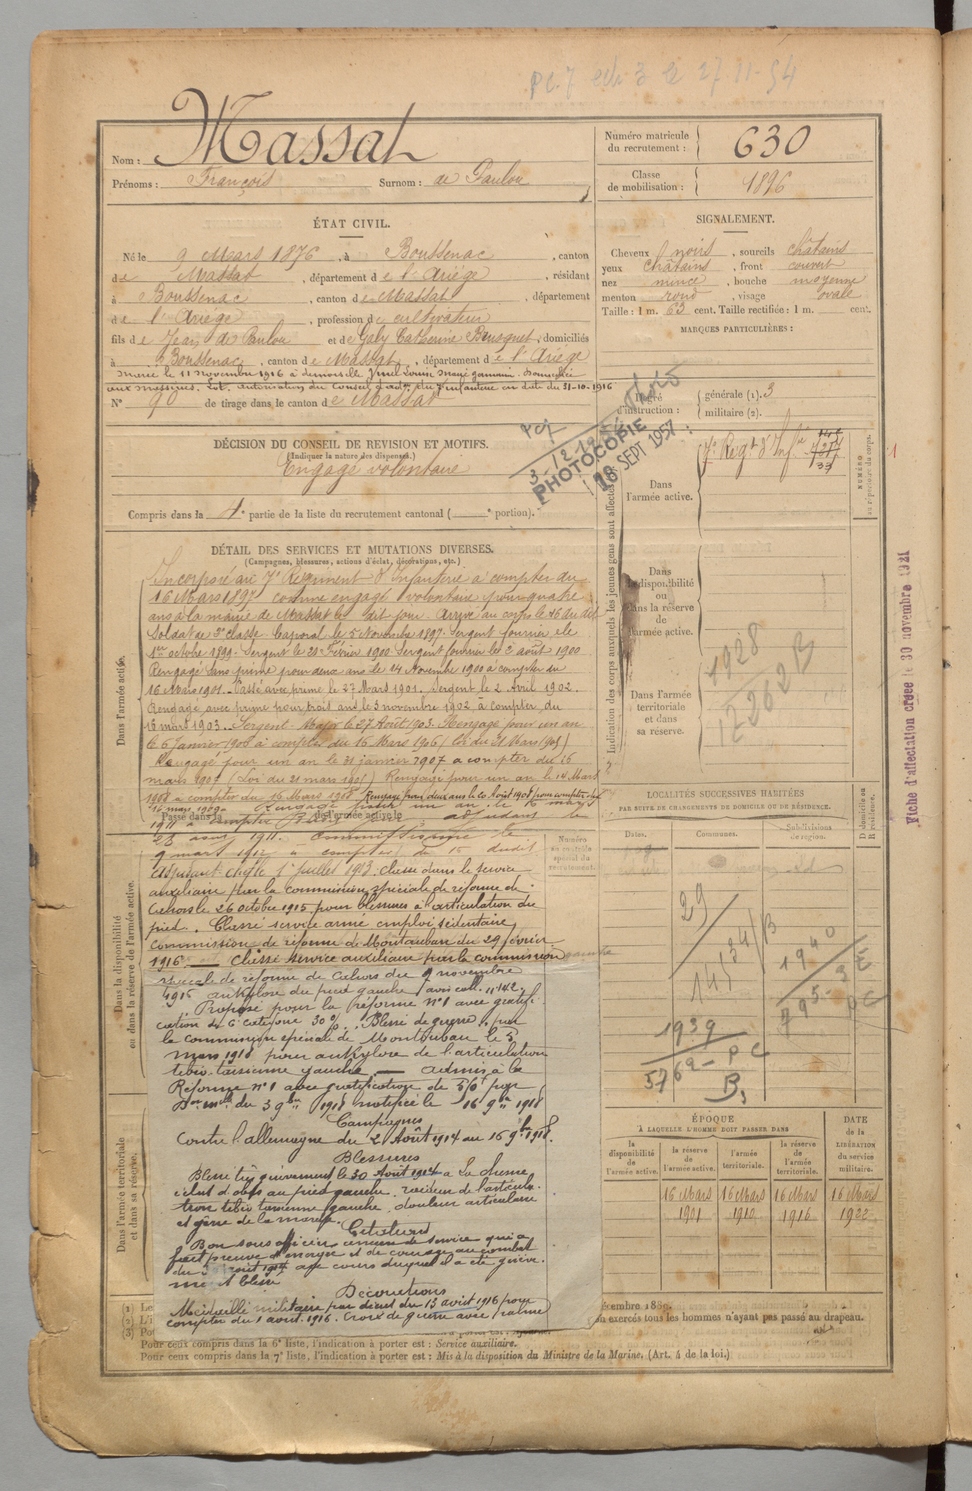 27-11-54
Nom : Massat
Prénoms : François Surnom : de Paulou
Numéro matricule du recrutement : 630
Classe de mobilisation : 1896
ÉTAT CIVIL.
Né le 9 Mars 1876, à Boussenac, canton
de Massat, département de l'Ariège, résidant
à Boussenac, canton de Massat, département
de l'Ariège, profession de cultivateur
fils de Jean de Paulou et de Galy Catherine Bousquet, domiciliés
à Boussenac, canton de Massat, département de l'Ariège
Marié le 11 novembre 1916 à demoiselle
autorisation du Conseil d'adon du 7e Infanterie en date du 31-10-1916
N° 90 de tirage dans le canton de Massat
SIGNALEMENT.
Cheveux noirs, sourcils châtains
yeux châtains, front couvert
nez mince, bouche moyenne
menton rond, visage ovale
Taille : 1 m. 63 cent. Taille rectifiée : 1 m. cent.
MARQUES PARTICULIÈRES :
Degré d'instruction : générale (1). 3
militaire (2).
DÉCISION DU CONSEIL DE REVISION ET MOTIFS.
(Indiquer la nature des dispenses.)
Engagé volontaire
Compris dans la 4e partie de la liste du recrutement cantonal ( e portion).
PHOTOCOPIE
18 SEPT 1957
Indication des corps auxquels les jeunes gens sont affectés
Dans l'armée active.
7e Régt d'Infie
NUMÉRO au répertoire du corps.
Dans la disponibilité ou dans la réserve de l'armée active.
Dans l'armée territoriale et dans sa réserve.
1928
12262 B
Fiche d'affectation créée le 30 novembre 1921
DÉTAIL DES SERVICES ET MUTATIONS DIVERSES.
(Campagnes, blessures, actions d'éclat, décorations, etc.)
Dans l'armée active.
Incorporé au 7e Régiment d'Infanterie à compter du
16 Mars 1897 comme engagé volontaire pour quatre
ans à la mairie de Massat le dit jour. Arrivé au corps le 16 du dit
Soldat de 2e classe. Caporal le 5 Novembre 1897. Sergent fourrier le
1er octobre 1899. Sergent le 20 Février 1900. Sergent fourrier le 2 août 1900
Rengagé sans prime pour deux ans le 14 Novembre 1900 à compter du
16 Mars 1901. Cassé avec prime le 27 Mars 1901. Sergent le 2 Avril 1902.
Rengagé avec prime pour trois ans le 3 novembre 1902 à compter du
16 mars 1903. Sergent Major le 27 Août 1903. Rengagé pour un an
le 6 Janvier 1906 à compter du 16 Mars 1906 (Loi du 21 Mars 1905)
Rengagé pour un an le 31 janvier 1907 à compter du 16
mars 1907 (Loi du 21 mars 1905) Rengagé pour un an le 14 Mars
1908 à compter du 16 Mars 1908 Rengagé pour deux ans le 20 Août 1908 pour compter du
16 mars 1909. Rengagé pour un an le 16 mars
Passé dans la de l'armée active le
1911 à compter adjudant le
1911. Commissionné le
9 mars 1912 à compter du 16 dudit
Adjudant chef le 1er juillet 1913. Classé dans le service
auxiliaire par la commission spéciale de réforme de
Cahors le 26 octobre 1915 pour blessures à l'articulation du
pied. Classé service armé emploi sédentaire
Commission de réforme de Montauban du 29 février
1916 Classé service auxiliaire par la commission
spéciale de réforme de Cahors du 9 novembre
1916 ankylose du pied gauche (avis coll. 11142.
Proposé pour la réforme n°1 avec gratifi-
cation de 6e catégorie 30%. "Blessé de guerre" par
la commission spéciale de Montauban le 5
mars 1918 pour ankylose de l'articulation
tibio tarsienne gauche. Admis à la
Réforme n°1 avec gratification de
Don mlle du 3 9bre 1918 notifiée le 16 9bre 1918
Campagnes
Contre l'allemagne du 2 Août 1914 au 16 9bre 1918.
Blessures
Blessé très grièvement le 30 Août 1914 à
éclat d'obus au pied gauche, raideur de l'articula-
tion tibio tarsienne gauche, douleur articulaire
et gêne de la marche.
Citations
Bon sous officier ancien de service qui a
fait preuve d'énergie et de courage au combat
du 30 août 1914 au cours duquel il a été griève-
ment blessé
Décorations
Médaille militaire par décret du 13 août 1916 pour
compter du 1 août 1916. Croix de guerre avec palme
Dans la disponibilité ou dans la réserve de l'armée active.
Dans l'armée territoriale et dans sa réserve.
Numéro au contrôle spécial du recrutement.
LOCALITÉS SUCCESSIVES HABITÉES
PAR SUITE DE CHANGEMENTS DE DOMICILE OU DE RÉSIDENCE.
Dates. Communes. Subdivisions de région. D domicile ou R résidence.
29
14134 B
1940
1939
5769 - PC
ÉPOQUE
À LAQUELLE L'HOMME DOIT PASSER DANS
la disponibilité de l'armée active. la réserve de l'armée active. l'armée territoriale. la réserve de l'armée territoriale.
DATE de la LIBÉRATION du service militaire.
16 Mars 1901 16 Mars 1910 16 Mars 1916 16 Mars 1922
(1) Le
(2) L'i
(3) Pou
décembre 1889.
exercés tous les hommes n'ayant pas passé au drapeau.
Pour ceux compris dans la 6e liste, l'indication à porter est : Service auxiliaire.
Pour ceux compris dans la 7e liste, l'indication à porter est : Mis à la disposition du Ministre de la Marine. (Art. 4 de la loi.)